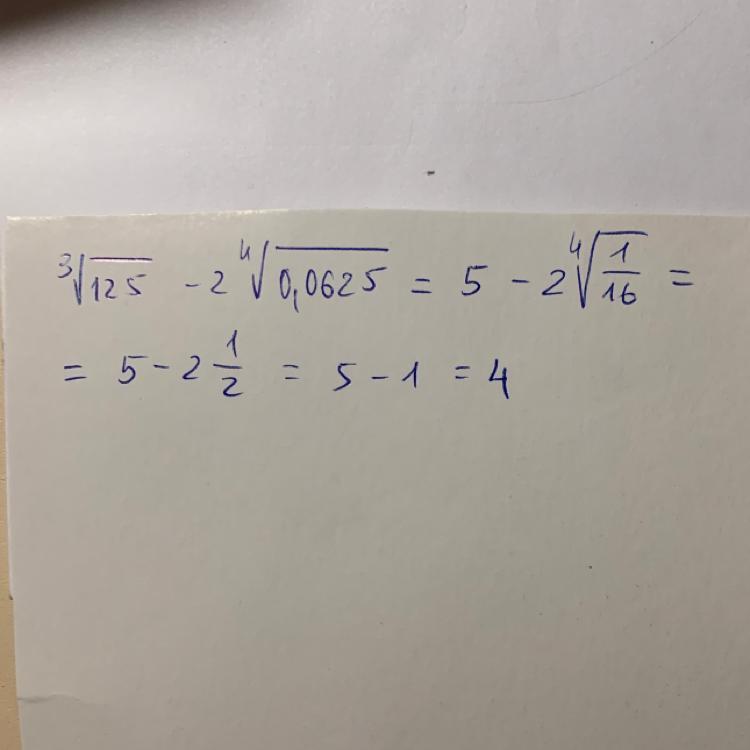 ∛125 - 2 ∜0,0625 = 5 - 2 ∜(1/16) =
= 5 - 2 1/2 = 5 - 1 = 4